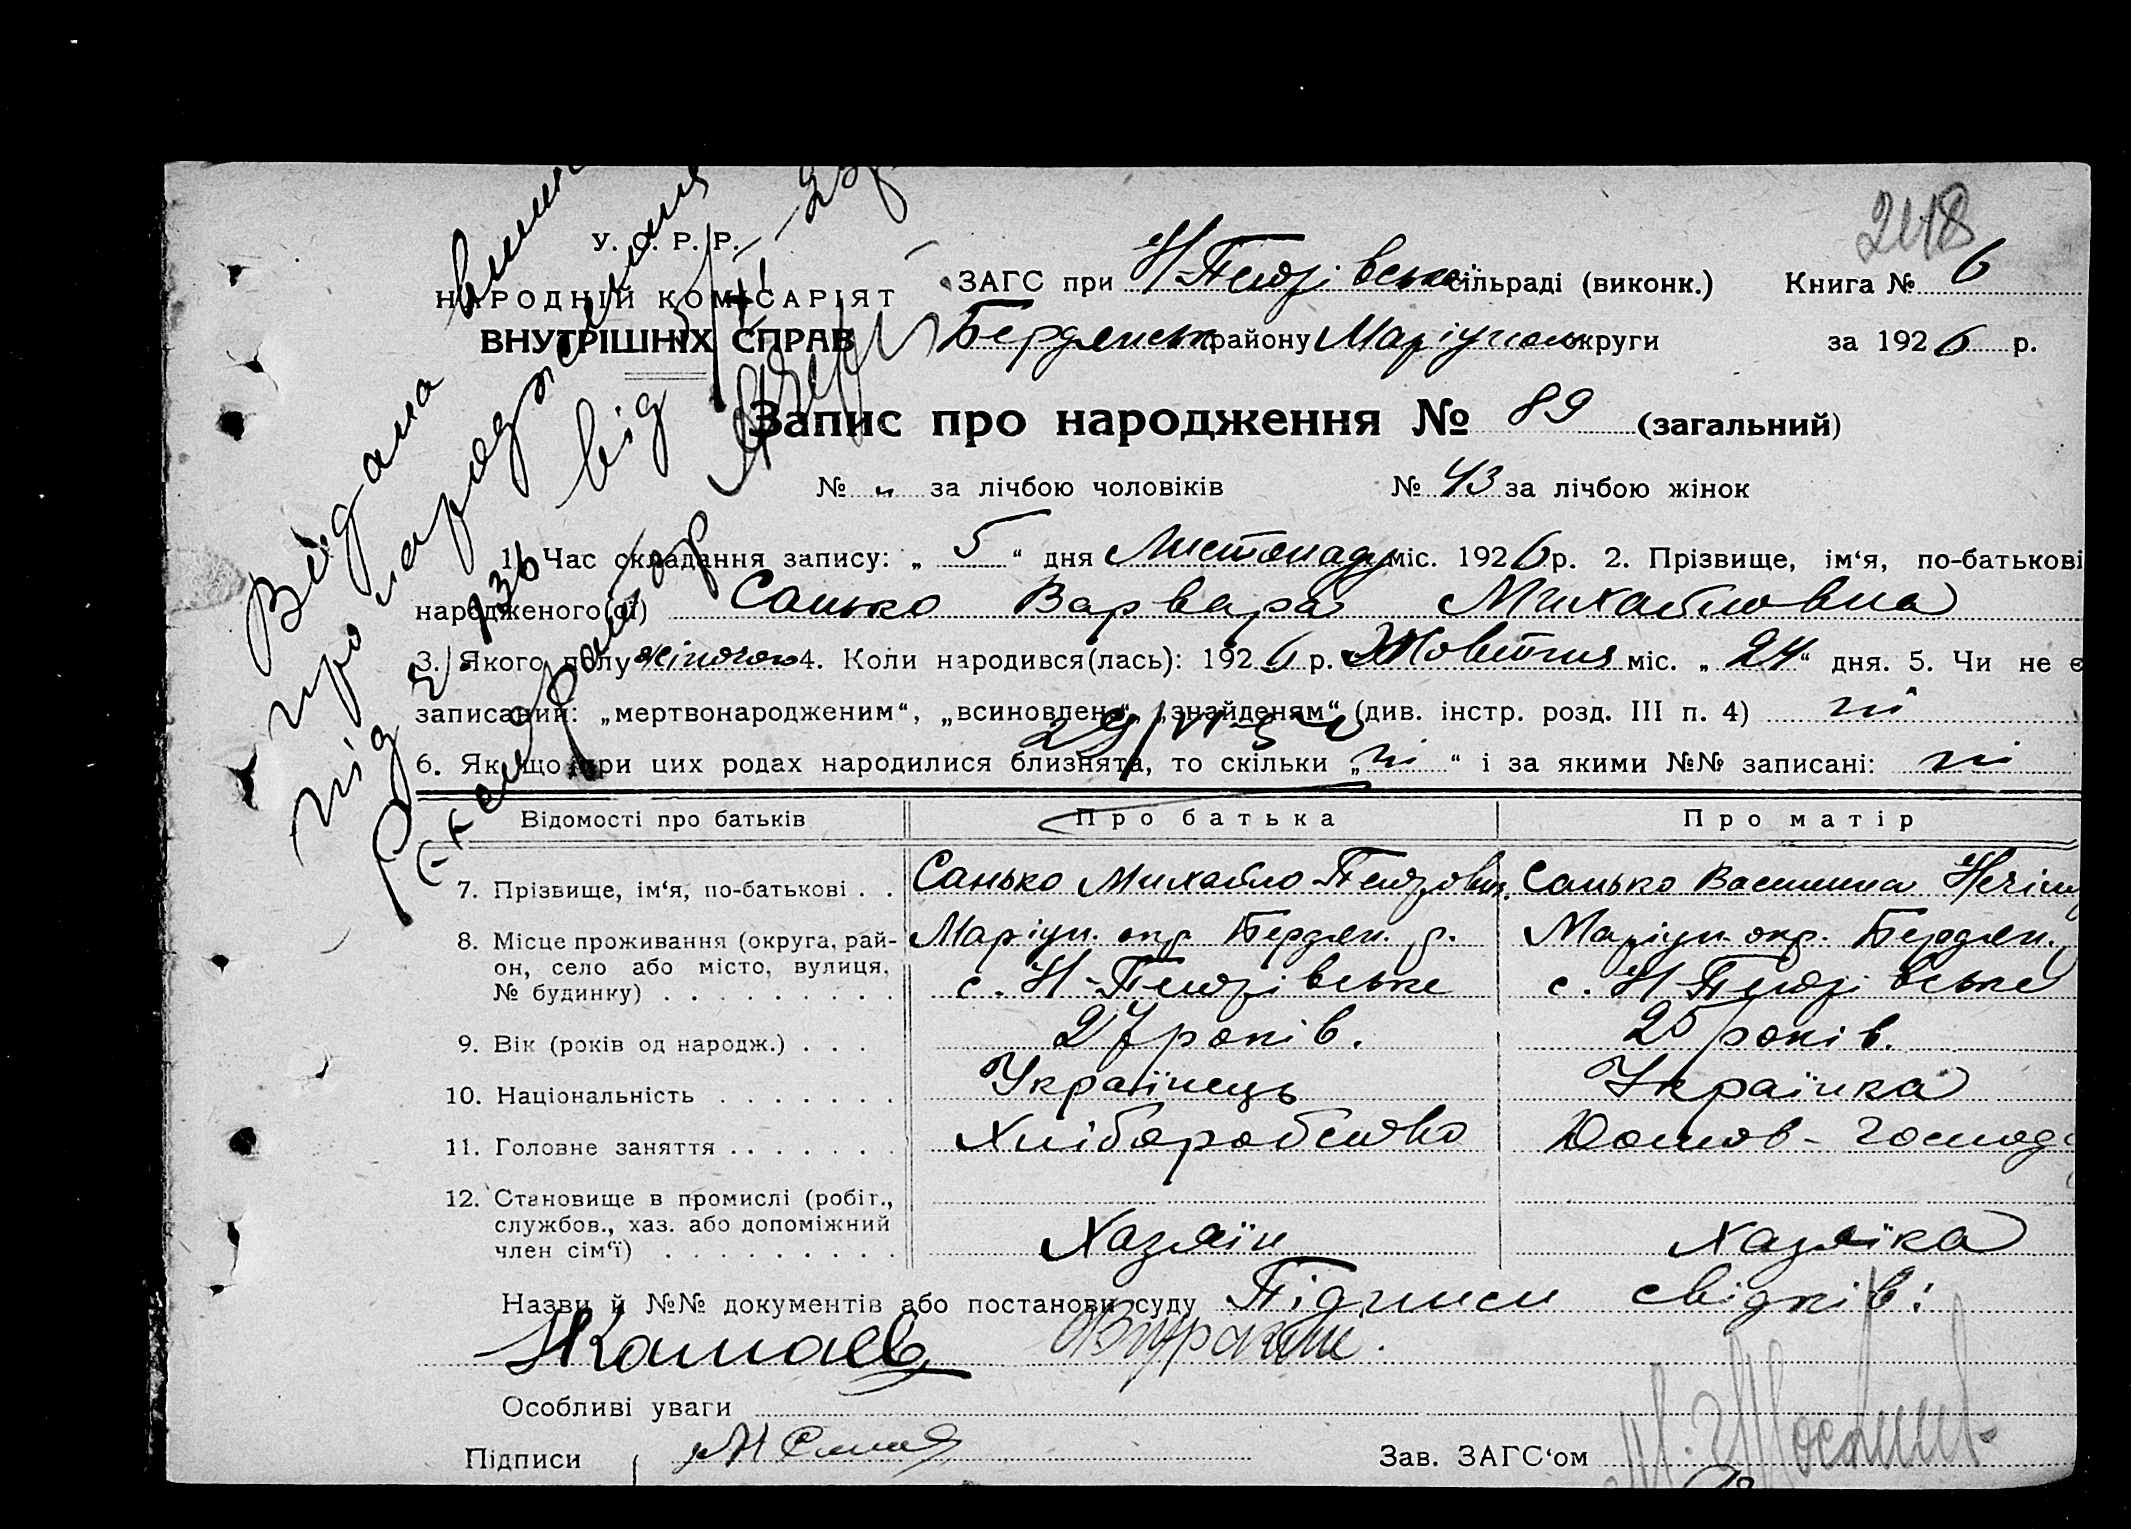 248
У. С. Р. Р.
НАРОДНІЙ КОМІСАРІЯТ
ВНУТРІШНІХ СПРАВ
ЗАГС при Н-Петрівськ. сільраді (виконк.) Книга № 6
Бердянськ району Маріупол округи за 1926 р.
Запис про народження № 89 (загальний)
№ „ за лічбою чоловіків № 43 за лічбою жінок
1. Час складання запису: „ 5 “ дня Листопаду міс. 1926 р. 2. Прізвище, ім‘я, по-батькові
народженого(ої) Санько Варвара Михайловна
3. Якого полу жіночого 4. Коли народився(лась): 1926 р. Жовтня міс. „ 24 “ дня. 5. Чи не є
записаний: „мертвонародженим“, „всиновлен“, „знайденям“ (див. інстр. розд. III п. 4) ні
6. Якщо при цих родах народилися близнята, то скільки „ ні “ і за якими №№ записані: ні
Відомості про батьків Про батька Про матір
7. Прізвище, ім‘я, по-батькові . . Санько Михайло Петрович. Санько Василина
8. Місце проживання (округа, рай- Маріуп. окр. Бердян. р. Маріуп. окр. Бердян.
он, село або місто, вулиця,
№ будинку) . . . . . . . . . с. Н-Петрівське с. Н-Петрівське
9. Вік (років од народж.) . . . 27 років. 25 років.
10. Національність . . . . . . . Українець Українка
11. Головне заняття . . . . . . . Хліборобство Домов-господ
12. Становище в промислі (робіт.,
службов., хаз. або допоміжний
член сім‘ї) . . . . . . . . . Хазяїн Хазяїка
Назви й №№ документів або постанови суду Підписи свідків:
Особливі уваги
Підписи Зав. ЗАГС‘ом
Видана
про народження
під № 136 від